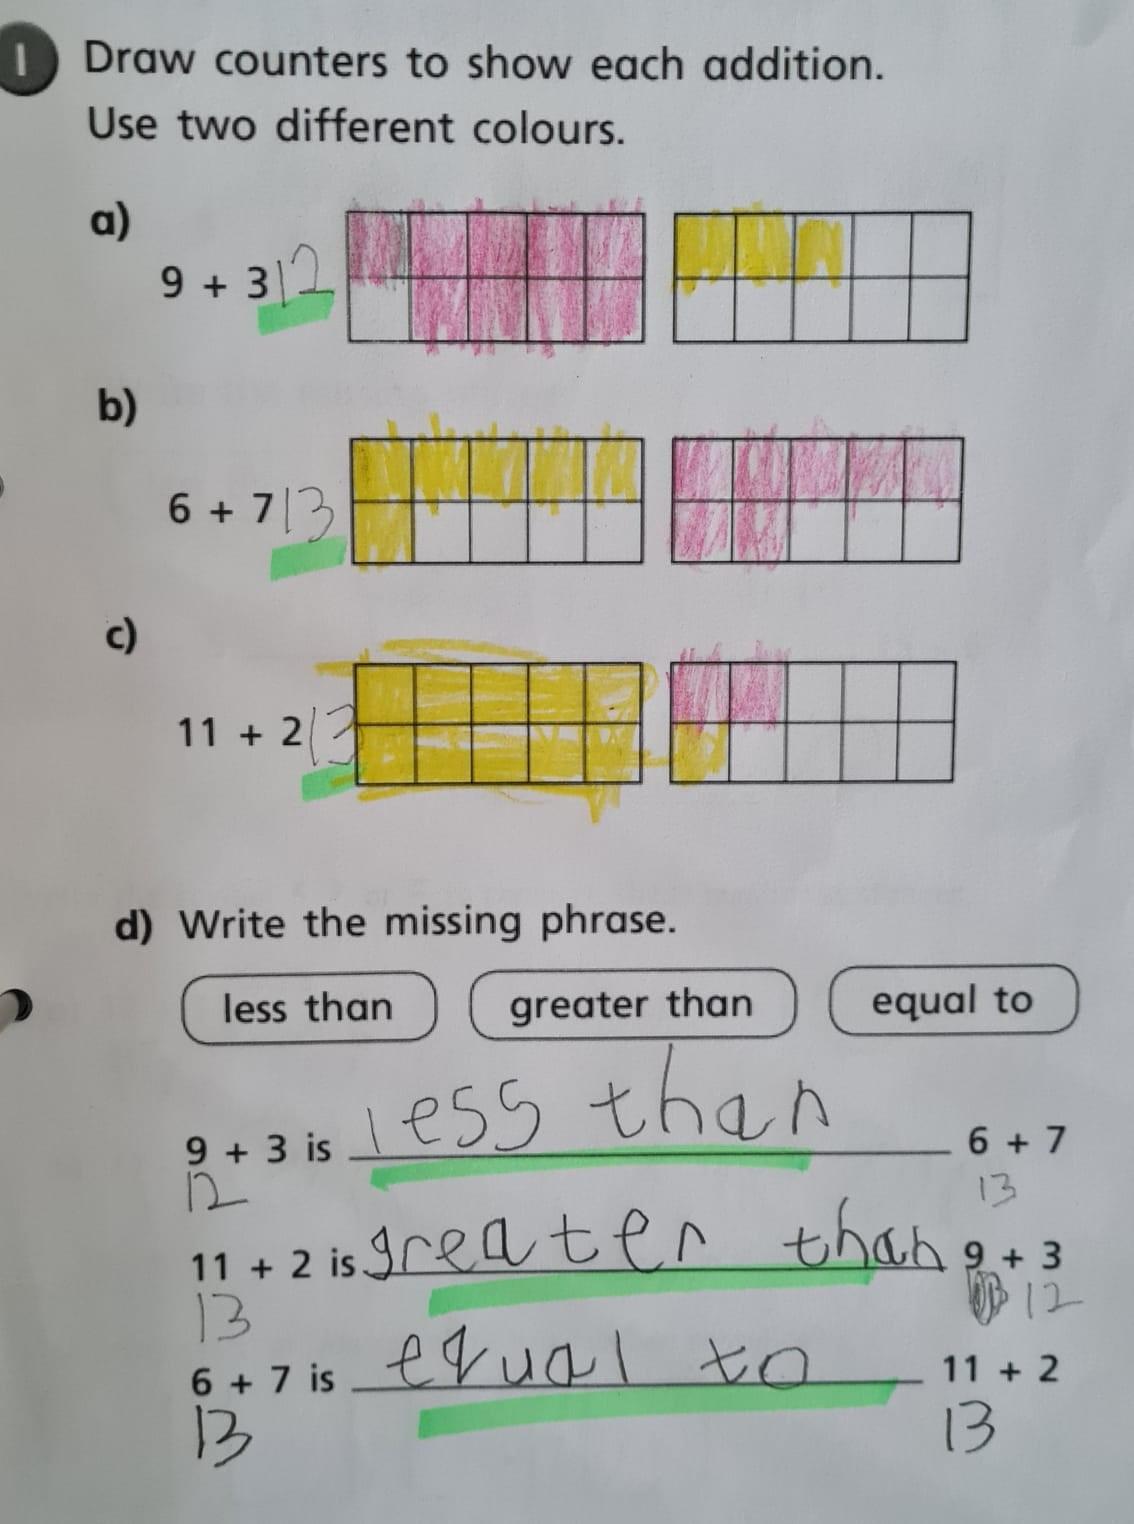 1 Draw counters to show each addition.
Use two different colours.
a)
9 + 3 12
b)
6 + 7 13
c)
11 + 2 13
d) Write the missing phrase.
less than greater than equal to
9 + 3 is less than 6 + 7
12 13
11 + 2 is greater than 9 + 3
13 12
6 + 7 is equal to 11 + 2
13 13